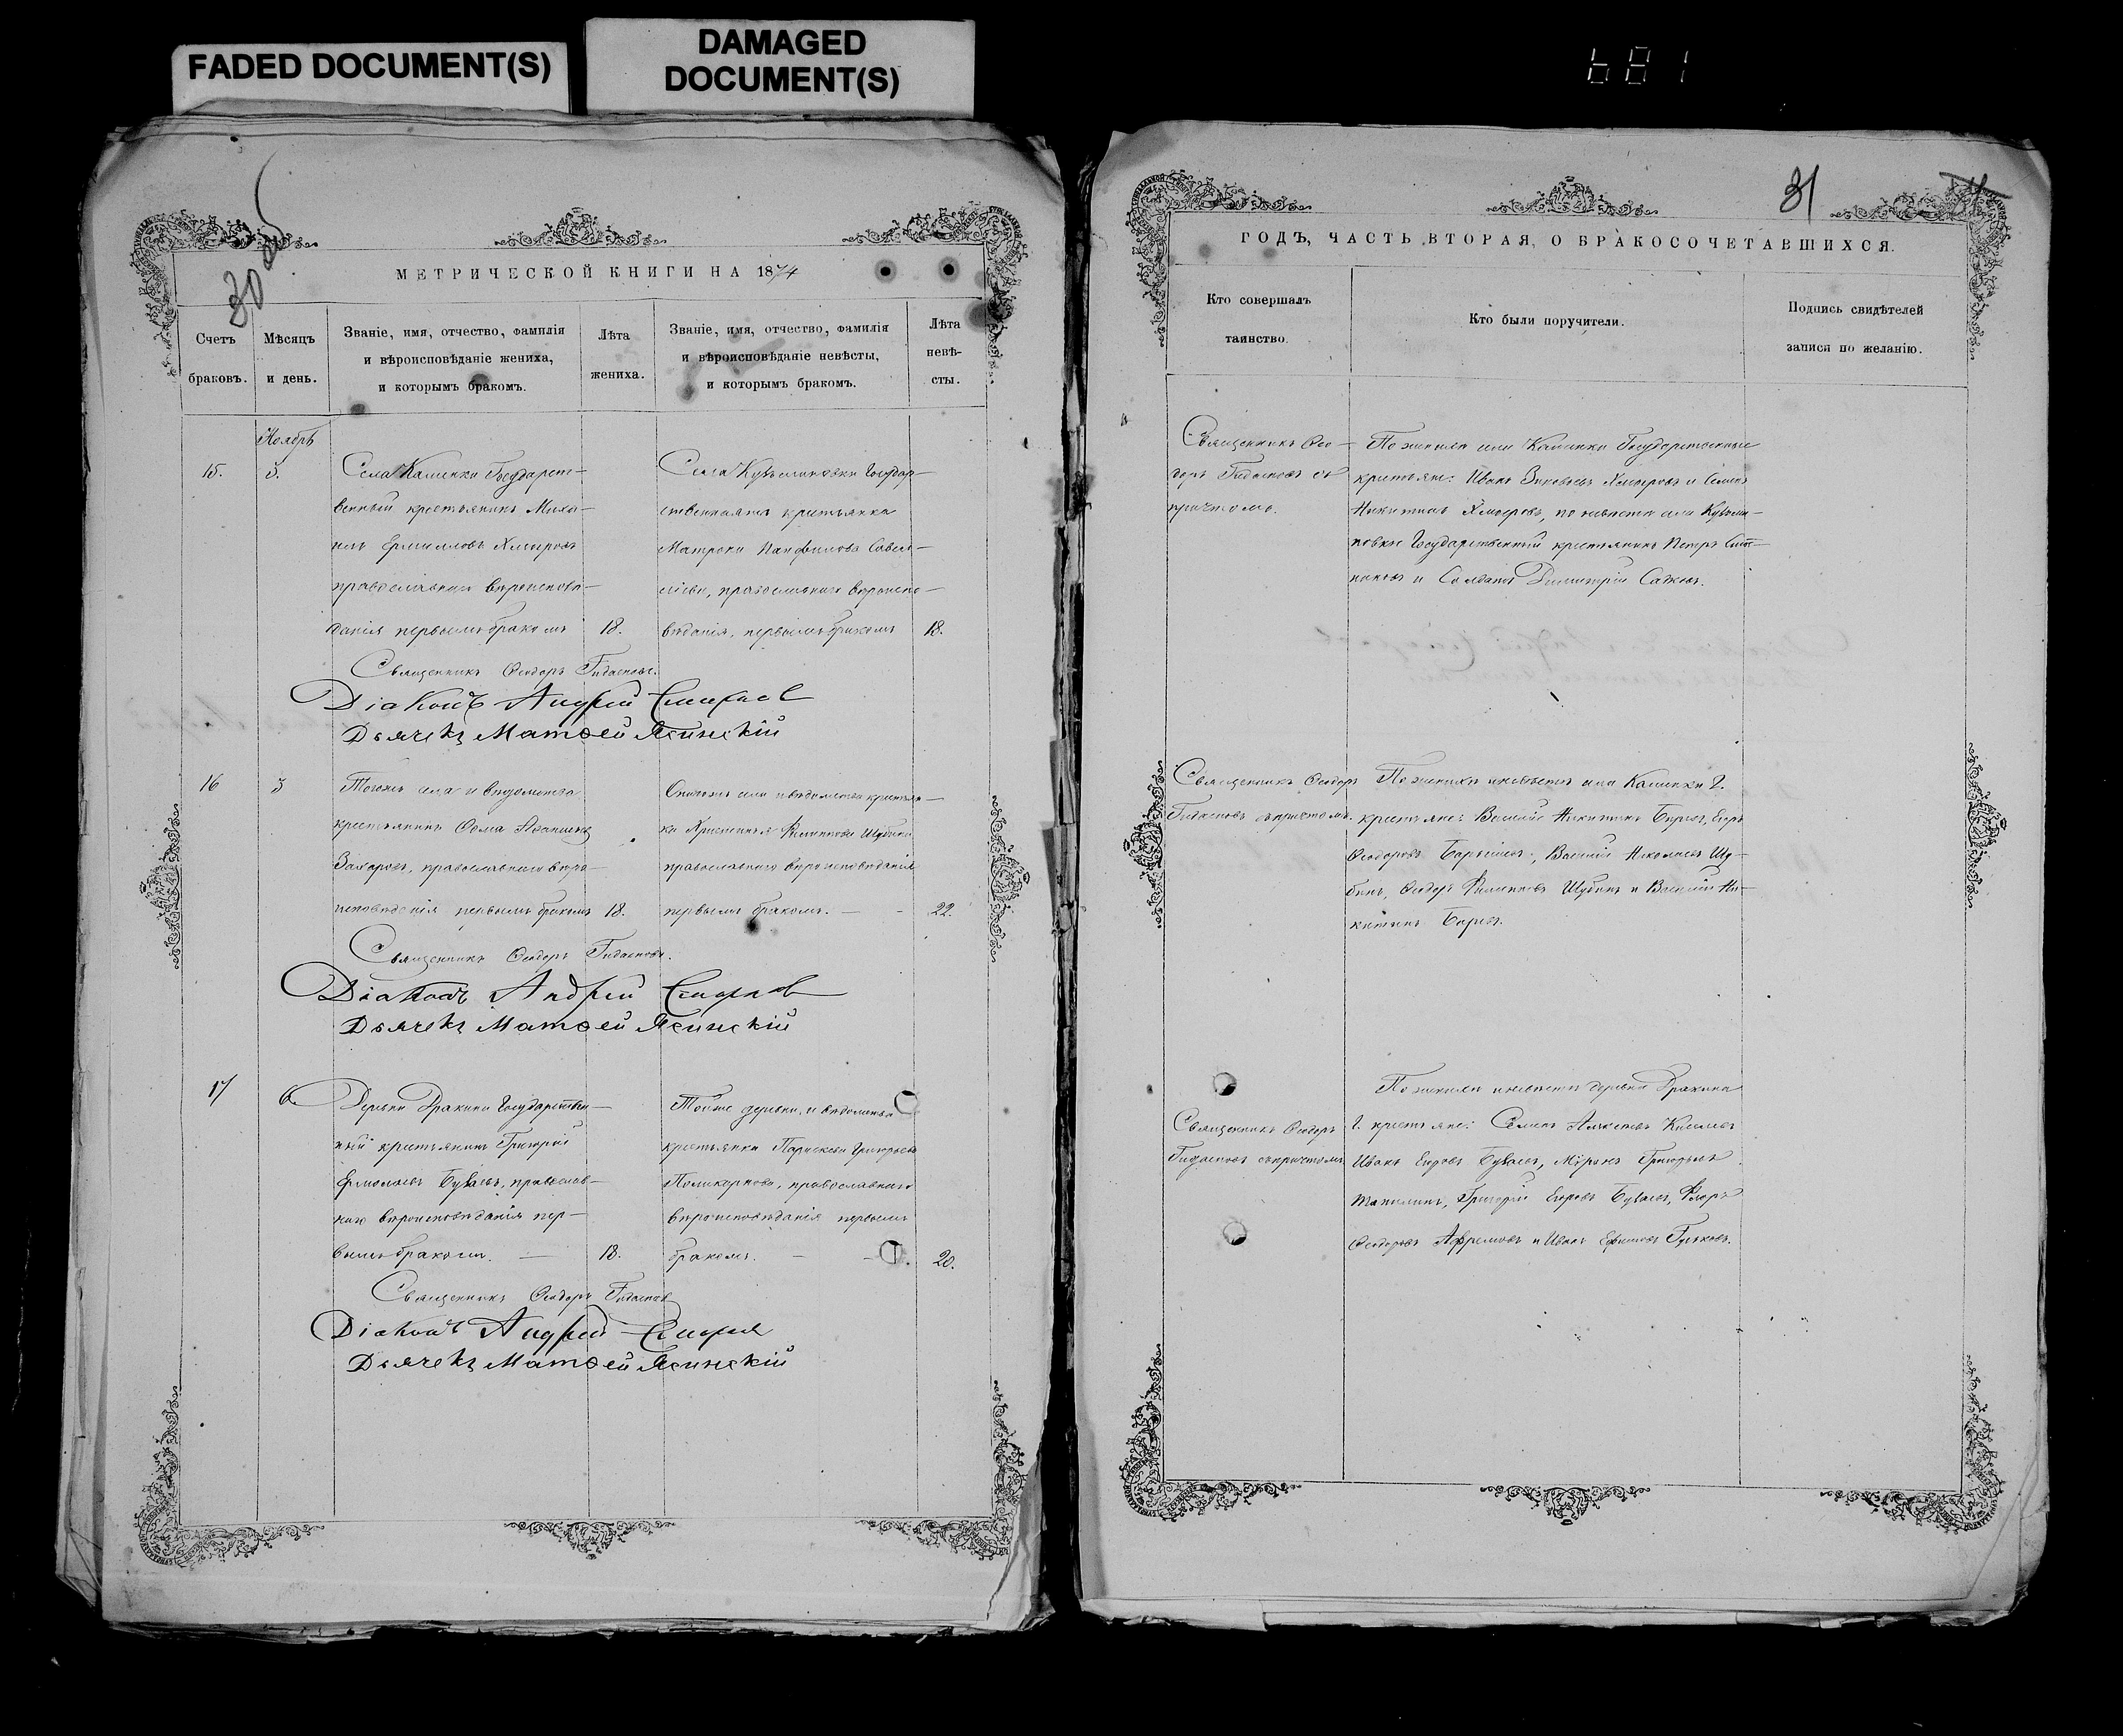 FADED DOCUMENT(S)
DAMAGED
DOCUMENT(S)
681
30
МЕТРИЧЕСКОЙ КНИГИ НА 1874
Счетъ
браковъ.
Мѣсяцъ
и день.
Званіе, имя, отчество, фамилія
и вѣроисповѣданіе жениха,
и которымъ бракомъ.
Лѣта
жениха.
Званіе, имя, отчество, фамилія
и вѣроисповѣданіе невѣсты,
и которымъ бракомъ.
Лѣта
невѣ-
сты.
Ноябрь
15.
3.
Села Каменки Государст-
венный крестьянинъ Миха-
илъ Ермиловъ Хмыровъ
православнаго вѣроисповѣ-
данія первымъ бракомъ
18.
Села Кузьминовки Государ-
ственная крестьянка
Матрона Панфилова Савель-
православнаго вѣроиспо-
вѣданія, первымъ бракомъ
18.
Священникъ Ѳеодоръ Гидасповъ.
Діаконъ Андрей Смирнов
Дьячекъ Матѳей Ясинскій
16
3
Тогоже села и вѣдомства
крестьянинъ Ѳома
Захаровъ, православнаго вѣро-
исповѣданія первымъ бракомъ
18.
села и вѣдомства крестьян-
ка Филиппова Шубина
православнаго вѣроисповѣданія
первымъ бракомъ.
22.
Священникъ Ѳеодоръ Гидасповъ.
Діаконъ Андрей Смирнов
Дьячекъ Матѳей Ясинскій
17
6
Деревни Дракина Государствен-
ный крестьянинъ Григорій
Ермолаевъ Буваевъ, православ-
наго вѣроисповѣданія пер-
вымъ бракомъ.
18.
Тойже деревни, и вѣдомства
крестьянка Параскева Григорьева
Поликарпова, православнаго
вѣроисповѣданія первымъ
бракомъ.
20.
Священникъ Ѳеодоръ Гидасповъ
Діаконъ Андрей Смирнов
Дьячекъ Матѳей Ясинскій
31
ГОДЪ, ЧАСТЬ ВТОРАЯ, О БРАКОСОЧЕТАВШИХСЯ.
Кто совершалъ
таинство.
Кто были поручители.
Подпись свидѣтелей
записи по желанію.
Священникъ Ѳео-
доръ Гидасповъ съ
причтомъ.
По женихѣ села Каменки Государственные
крестьяне: Иванъ Зиновьевъ Хмыровъ и Семенъ
Никитинъ Хмыровъ, по невѣстѣ села Кузьми-
новки Государственный крестьянинъ Петръ
и Солдатъ Димитрій
Священникъ Ѳеодоръ
Гидасповъ съ причтомъ.
По женихѣ и невѣстѣ села Каменки Г.
крестьяне: Василій Никитинъ Егоръ
Ѳеодоровъ Василій Николаевъ Шу-
бинъ, Ѳеодоръ Филипповъ Шубинъ и Василій Ни-
китинъ
Священникъ Ѳеодоръ
Гидасповъ съ причтомъ
По женихѣ и невѣстѣ деревни Дракина
Г. крестьяне: Семенъ Алексѣевъ Киселевъ
Иванъ Егоровъ Буваевъ, Миронъ Григорьевъ
Григорій Егоровъ Буваевъ,
Ѳеодоровъ и Иванъ Ефимовъ